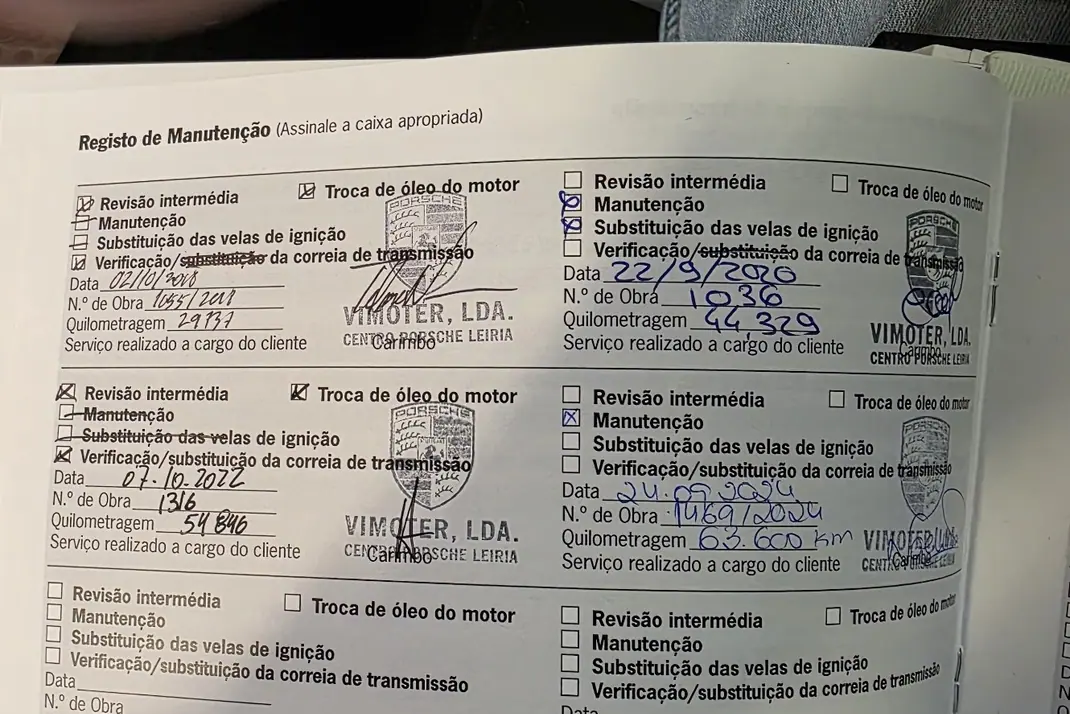 Registo de Manutenção (Assinale a caixa apropriada)
Revisão intermédia
Troca de óleo do motor
Manutenção
Substituição das velas de ignição
Verificação/substituição da correia de transmissão
Data 02/10/2018
N.º de Obra 1055/2018
Quilometragem 29737
Serviço realizado a cargo do cliente
PORSCHE
VIMOTER, LDA.
CENTRO PORSCHE LEIRIA
Carimbo
Revisão intermédia
Troca de óleo do motor
Manutenção
Substituição das velas de ignição
Verificação/substituição da correia de transmissão
Data 22/9/2020
N.º de Obra 1036
Quilometragem 44,329
Serviço realizado a cargo do cliente
PORSCHE
VIMOTER, LDA.
CENTRO PORSCHE LEIRIA
Carimbo
Revisão intermédia
Troca de óleo do motor
Manutenção
Substituição das velas de ignição
Verificação/substituição da correia de transmissão
Data 07.10.2022
N.º de Obra 1316
Quilometragem 54846
Serviço realizado a cargo do cliente
PORSCHE
VIMOTER, LDA.
CENTRO PORSCHE LEIRIA
Carimbo
Revisão intermédia
Troca de óleo do motor
Manutenção
Substituição das velas de ignição
Verificação/substituição da correia de transmissão
Data 24.09.2024
N.º de Obra 1469/2024
Quilometragem 63.600 km
Serviço realizado a cargo do cliente
VIMOTER, LDA.
CENTRO PORSCHE LEIRIA
Carimbo
Revisão intermédia
Troca de óleo do motor
Manutenção
Substituição das velas de ignição
Verificação/substituição da correia de transmissão
Data
N.º de Obra
Revisão intermédia
Troca de óleo do motor
Manutenção
Substituição das velas de ignição
Verificação/substituição da correia de transmissão
Data